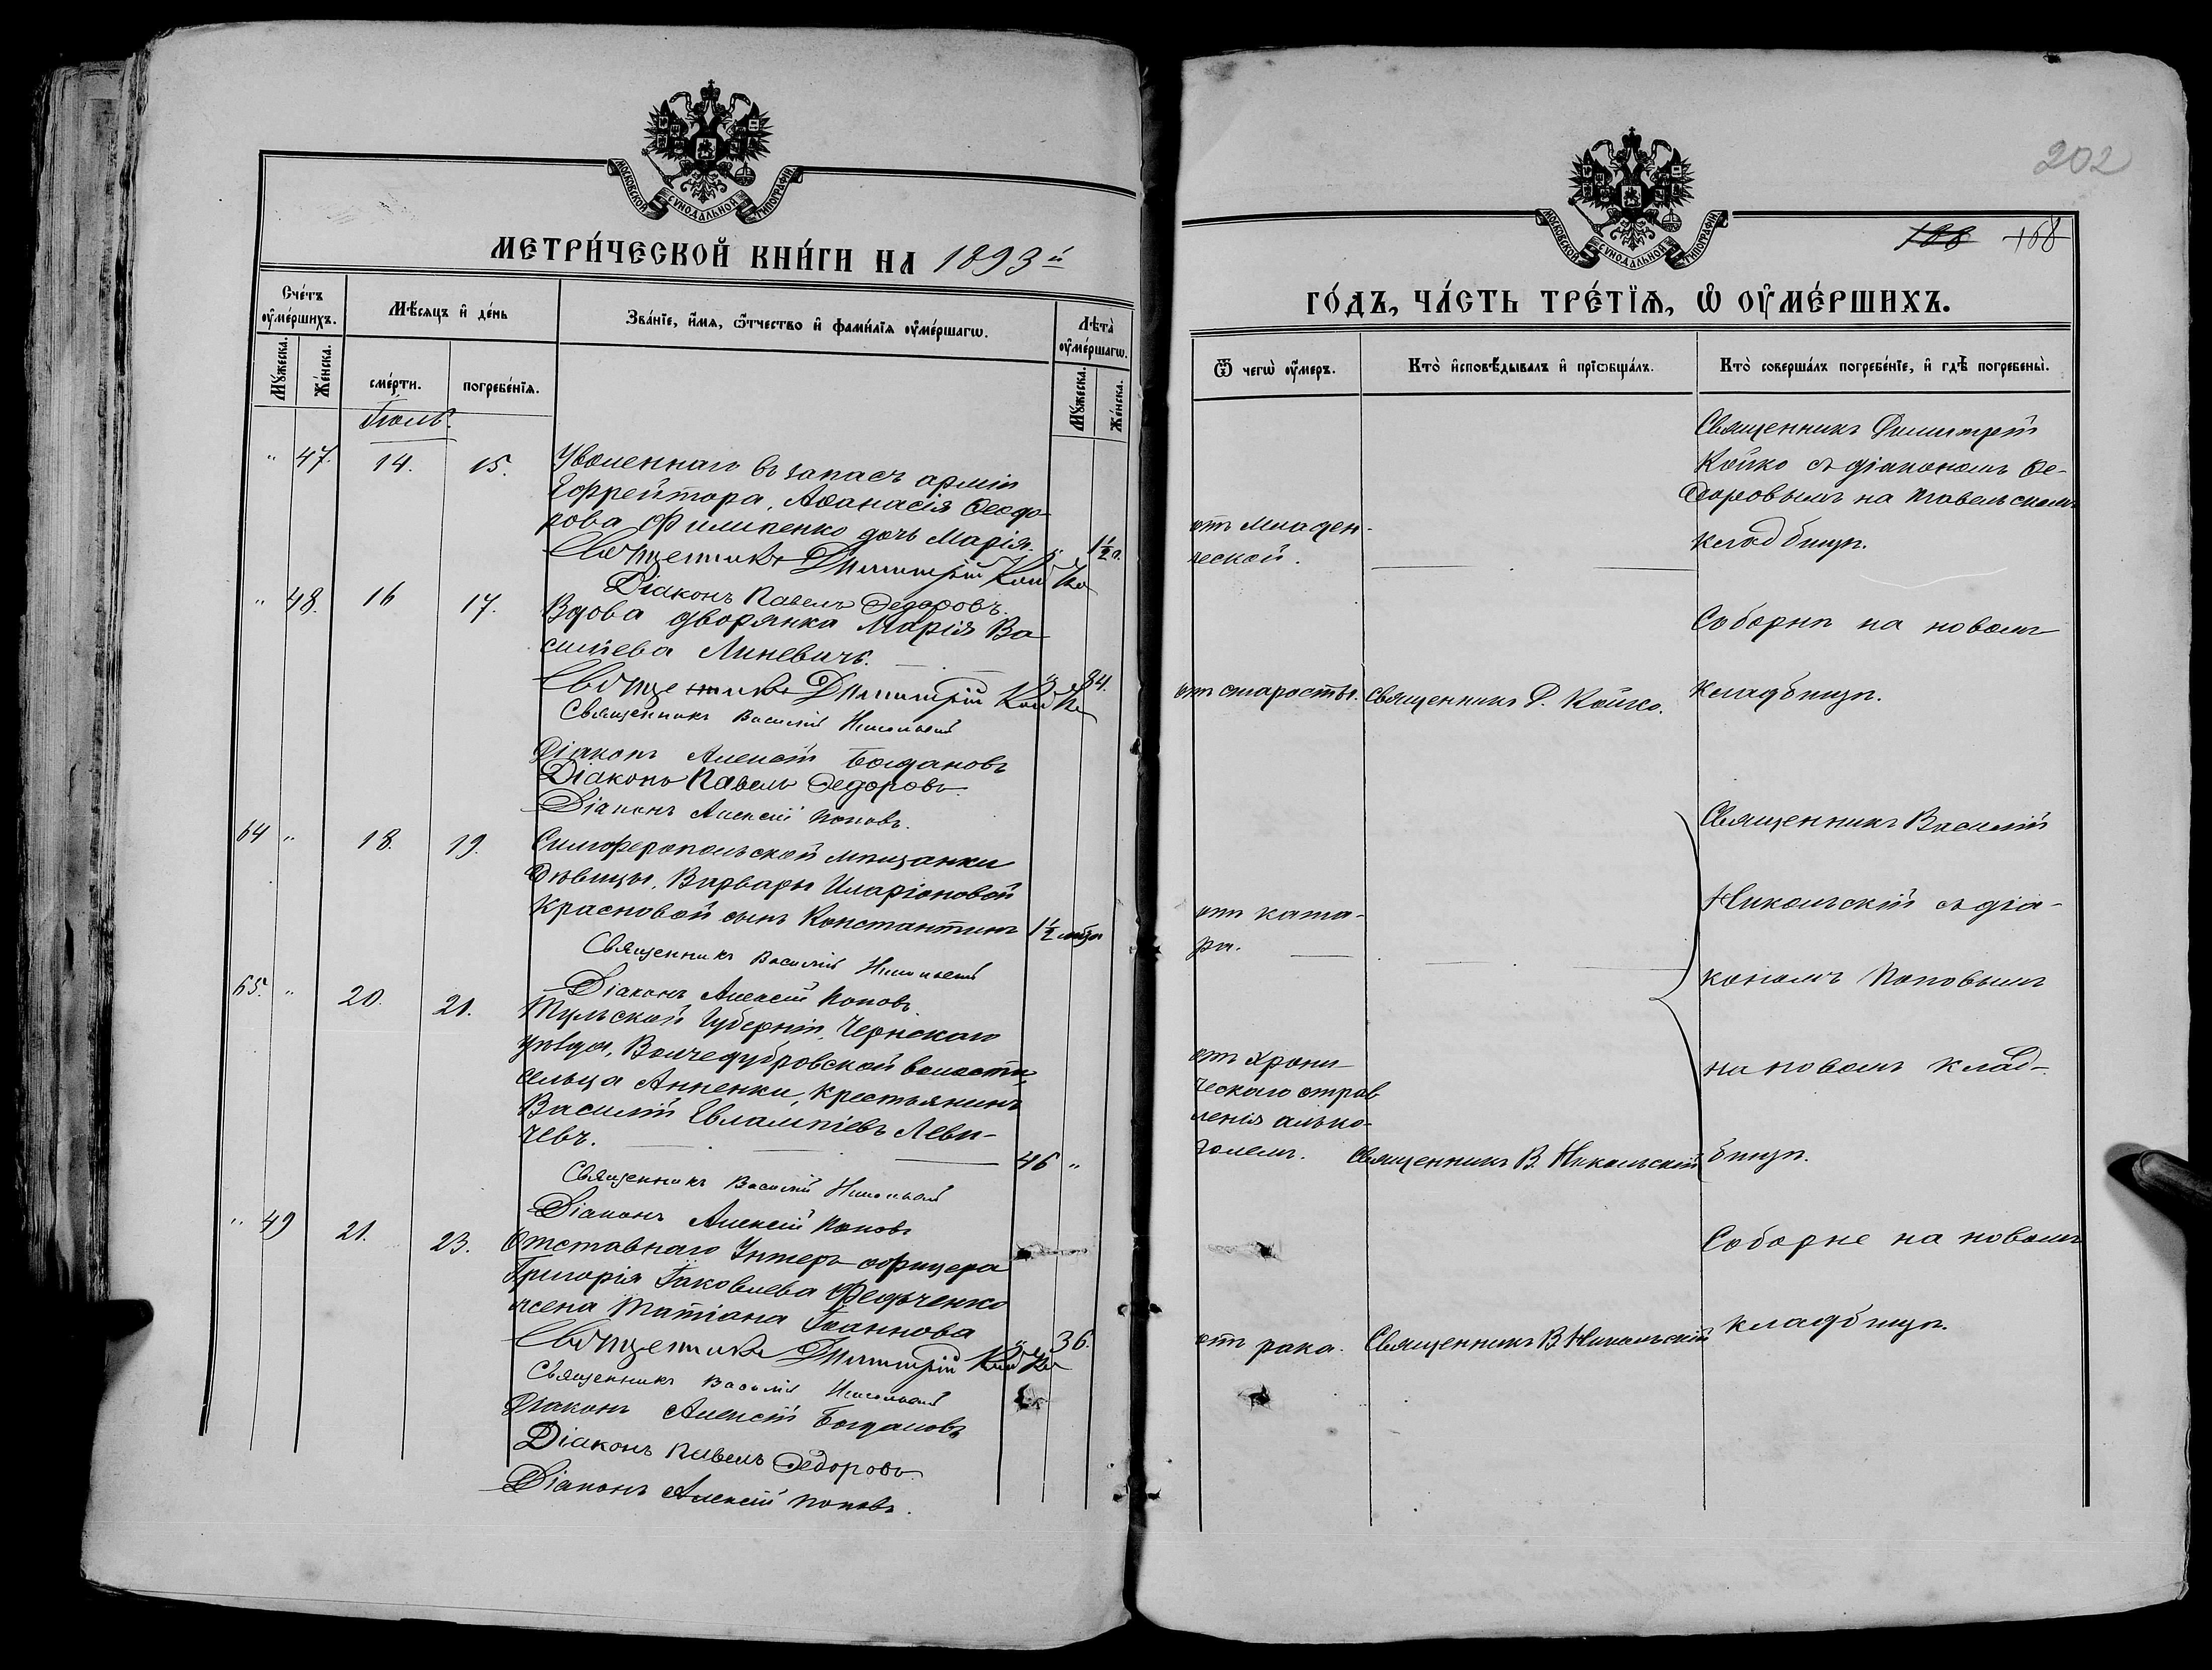 МОСКОВСКОЙ СѴНОДАЛЬНОЙ ТИПОГРАФІИ
МЕТРИ́ЧЕСКОЙ КНИ́ГИ НА 1893й
Сче́тъ ᲂу҆ме́ршихъ.
Мѣ́сяцъ и҆ де́нь
Зва́нїе, и҆́мя, ѻ҆́тчество и҆ фами́лїя ᲂу҆ме́ршагѡ.
Лѣта̀ ᲂу҆ме́ршагѡ.
Мꙋ́жеска.
Же́нска.
сме́рти.
погребе́нїѧ.
Мꙋ́жеска.
Же́нска.
Іюль.
" 47. 14. 15. Уволеннаго въ запасъ арміи
Ефрейтора, Аѳанасія Ѳеодо-
рова Филипенко дочь Марія. " 1½ г.
Священникъ Димитрій Койко
Діаконъ Павелъ Федоровъ.
" 48. 16 17. Вдова дворянка Марія Ва-
сильева Линевичъ. " 84.
Священникъ Димитрій Койко
Священникъ Василій Никольскій
Діаконъ Алексѣй Богдановъ
Діаконъ Павелъ Федоровъ.
Діаконъ Алексій Поповъ.
64 " 18. 19. Симферопольской мѣщанки
дѣвицы, Варвары Иларіоновой
Красновой сынъ Константинъ 1½ мѣс
Священникъ Василій Никольскій
Діаконъ Алексій Поповъ.
65. " 20. 21. Тульской Губерніи, Чернскаго
уѣзда, Волчедубровской волости,
сельца Анненки, крестьянинъ
Василій Евлампіевъ Леви-
чевъ. 46 "
Священникъ Василій Никольскій
Діаконъ Алексій Поповъ
" 49 21. 23. Отставнаго Унтеръ-офицера
Григорія Іаковлева Федченко
жена Татіана Іоаннова " 36.
Священникъ Димитрій Койко
Священникъ Василій Никольскій
Діаконъ Алексѣй Богдановъ
Діаконъ Павелъ Федоровъ.
Діаконъ Алексій Поповъ.
202
188 168
МОСКОВСКОЙ СѴНОДАЛЬНОЙ ТИПОГРАФІИ
ГО́ДЪ, ЧА́СТЬ ТРЕ́ТЇѦ, Ѡ҆ ОУ҆МЕ́РШИХЪ.
Ѿ чегѡ̀ ᲂу҆́меръ.
Кто̀ и҆сповѣ́дывалъ и҆ прїѡбща́лъ.
Кто̀ соверша́лъ погребе́нїе, и҆ гдѣ̀ погребены̀.
отъ младен-
ческой.
Священникъ Димитрій
Койко съ діакономъ Ѳе-
доровымъ на
кладбищѣ.
отъ старости. Священникъ Д. Койко.
Соборнѣ на новомъ
кладбищѣ.
отъ ката-
ра.
Священникъ Василій
Никольскій съ діа-
кономъ Поповымъ
на новомъ клад-
бищѣ.
отъ хрони-
ческаго отрав
ленія алько-
големъ. Священникъ В. Никольскій
отъ рака. Священникъ В. Никольскій
Соборне на новомъ
кладбищѣ.